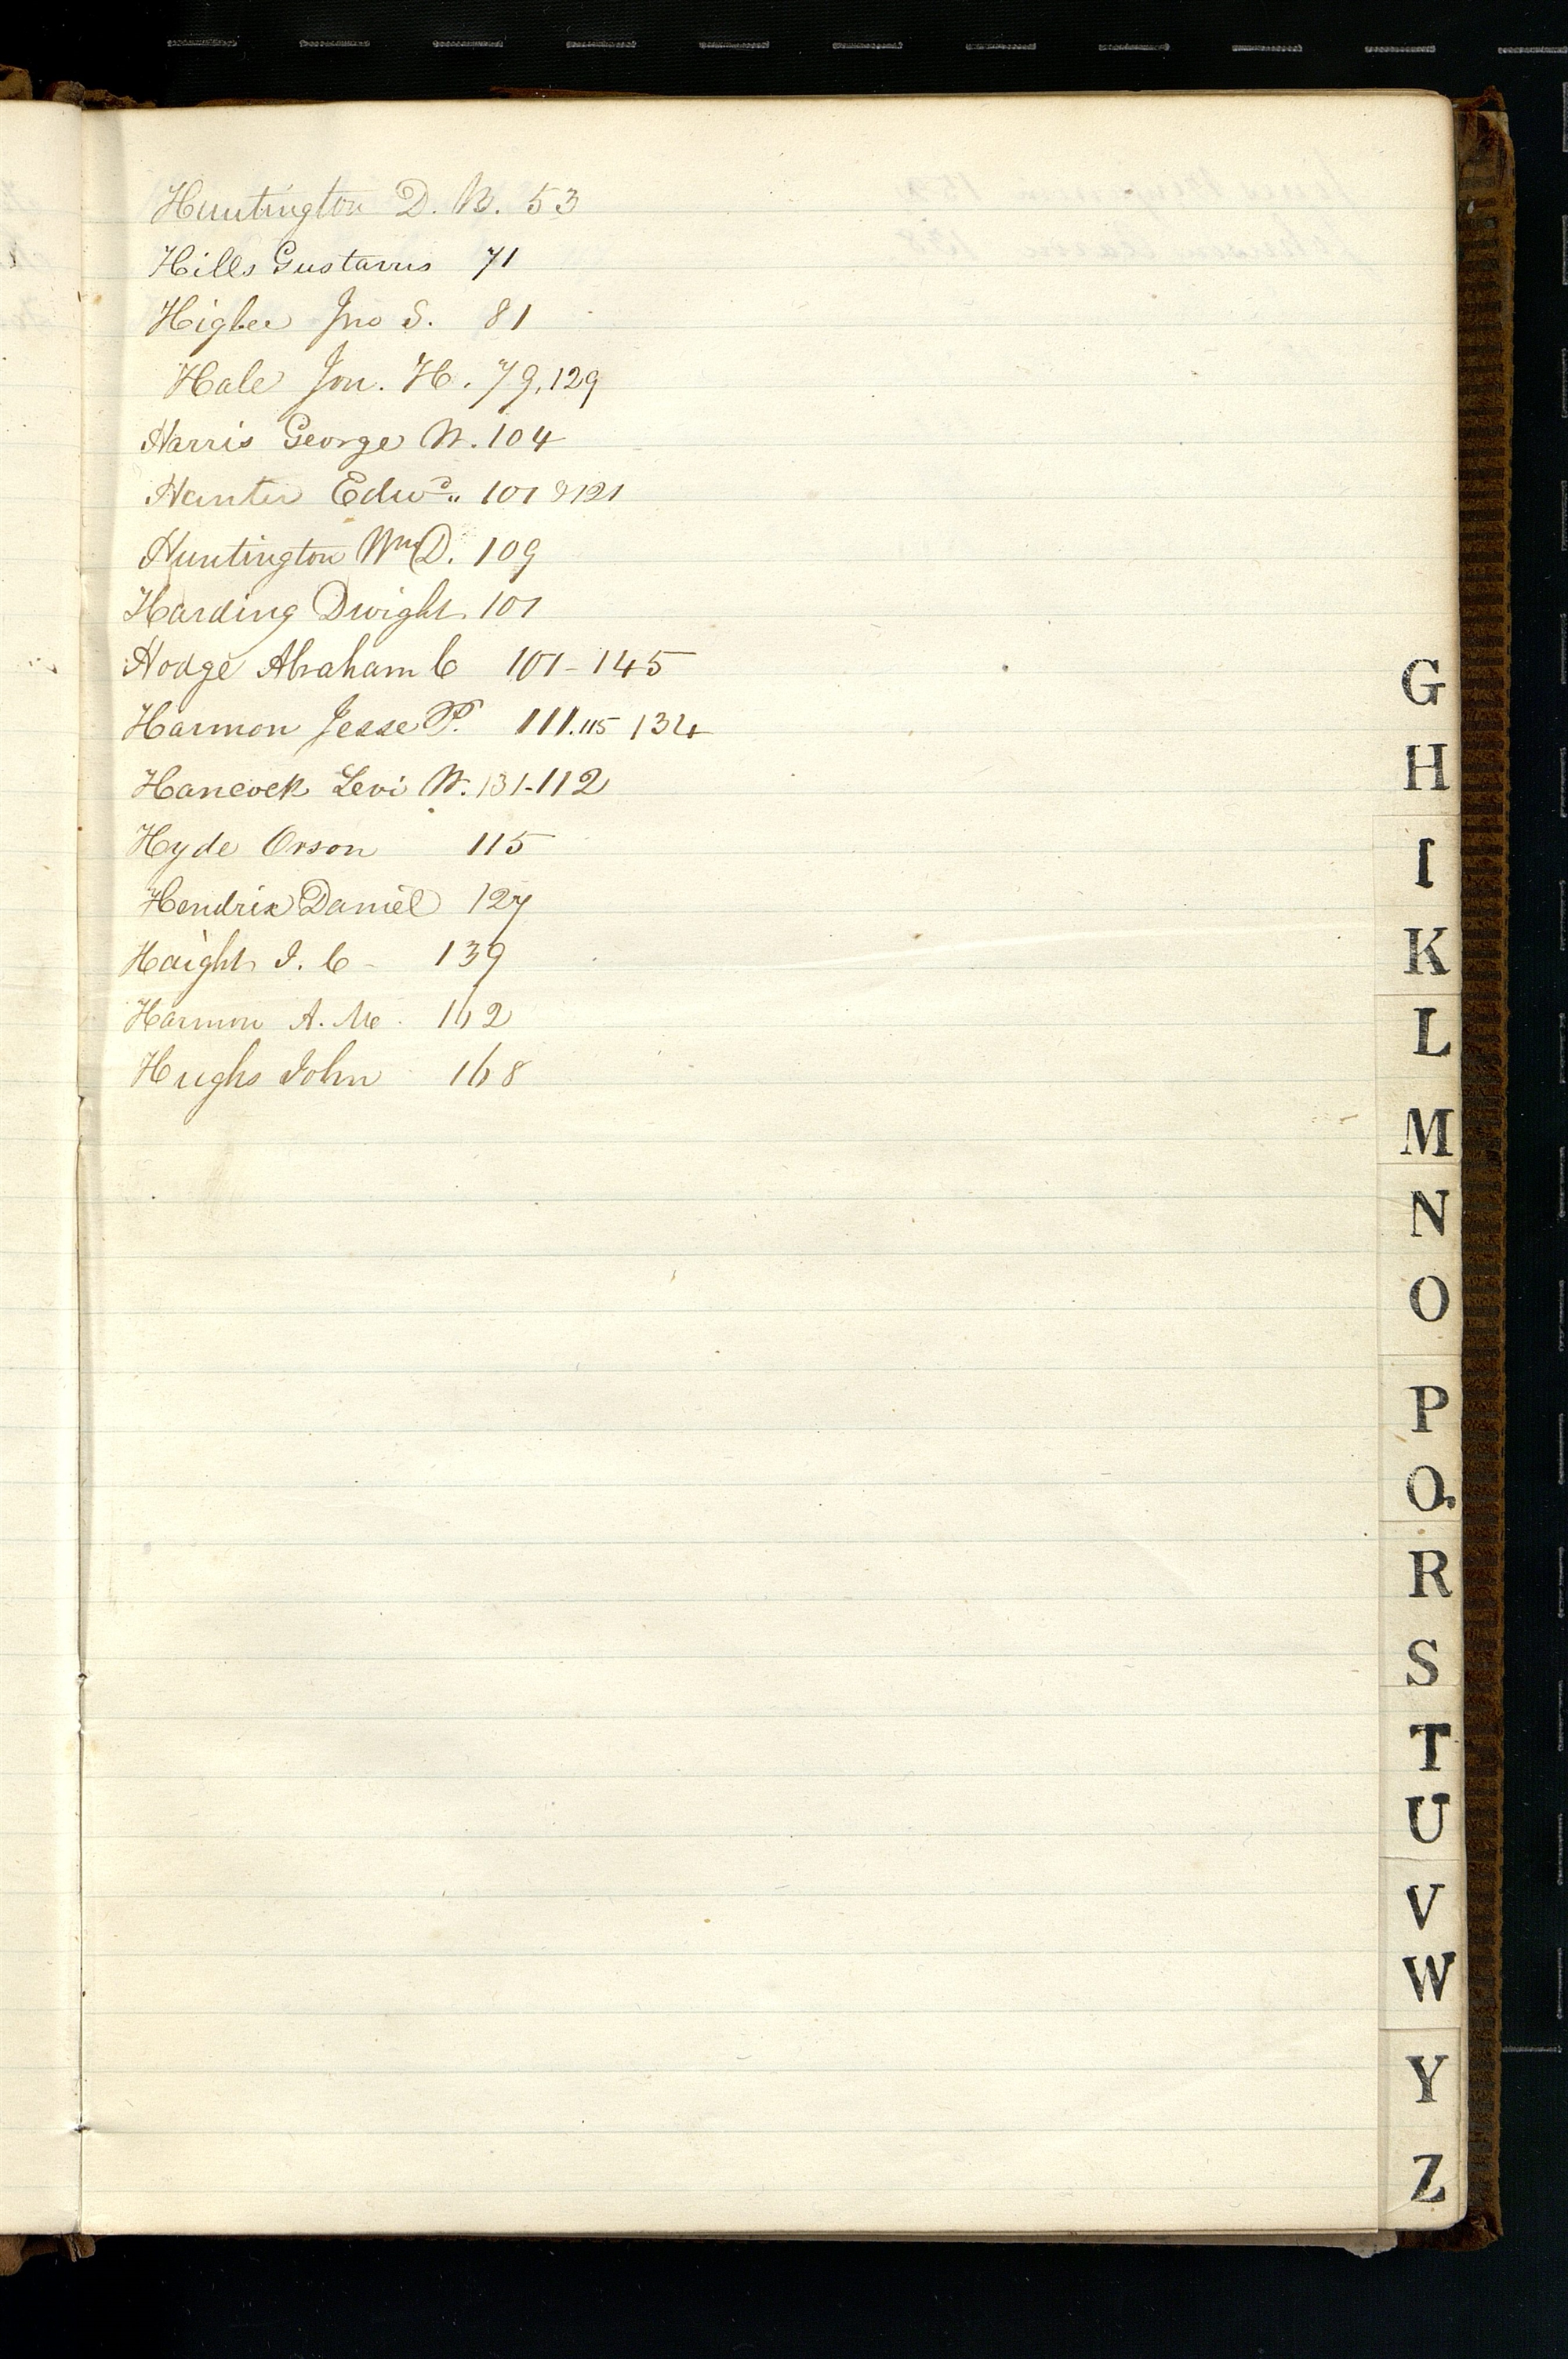 Huntington D. B. 53
Hills Gustavus 71
Higbee Jno S. 81
Hale Jon. H. 79, 129
Harris George W. 104
Hunter Edwd.. 101 & 121
Huntington Wm D. 109
Harding Dwight. 101
Hodge Abraham C 101 - 145
Harmon Jesse P. 111. 115 134
Hancock Levi W. 131-112
Hyde Orson 115
Hendrix Daniel 127
Haight I. C - 139
Harmon A. Mc. 162
Hughs John 168
G
H
I
K
L
M
N
O
P
Q
R
S
T
U
V
W
Y
Z